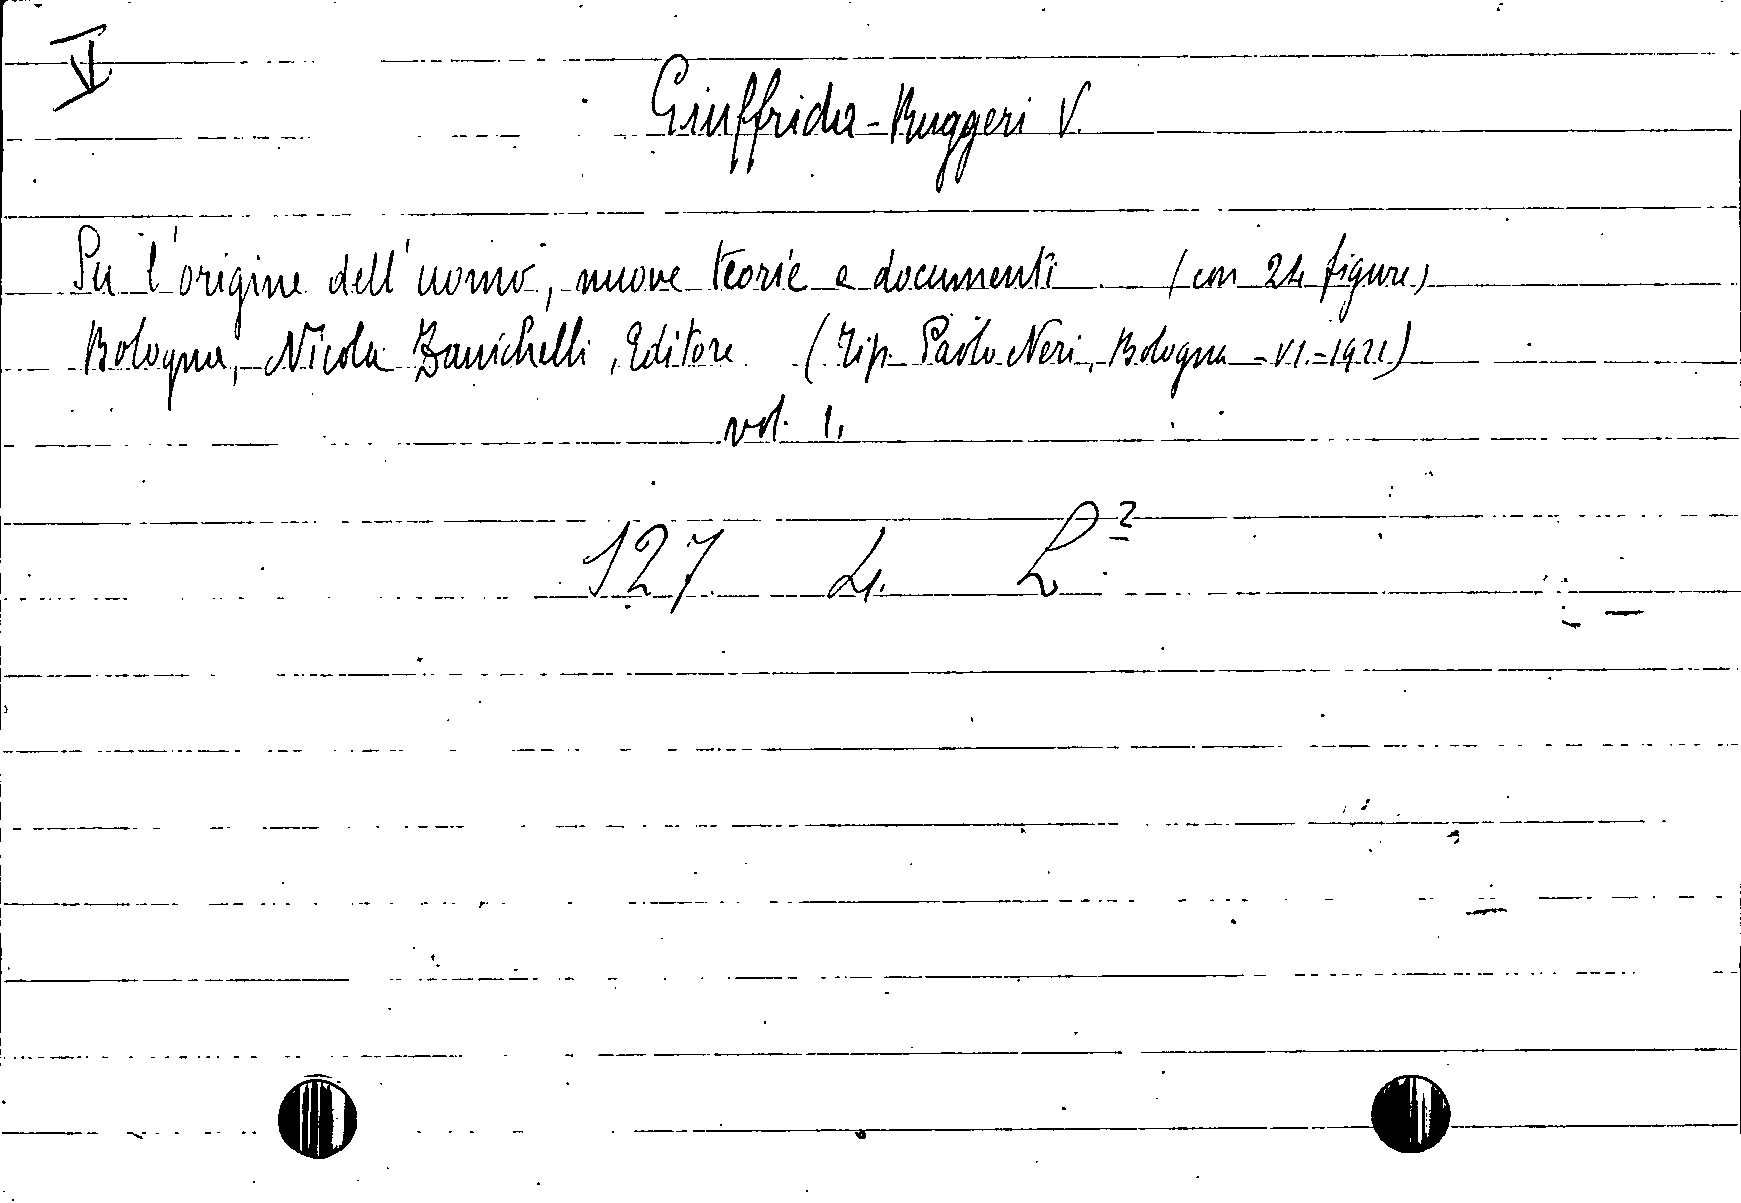 V
Giuffrida-Ruggeri V.
Su l'origine dell'uomo, nuove teorie e documenti (con 24 figure)
Bologna, Nicola Zanichelli, Editore (Tip. Paolo Neri, Bologna - VI.-1921)
vol. 1.
127 L. L²